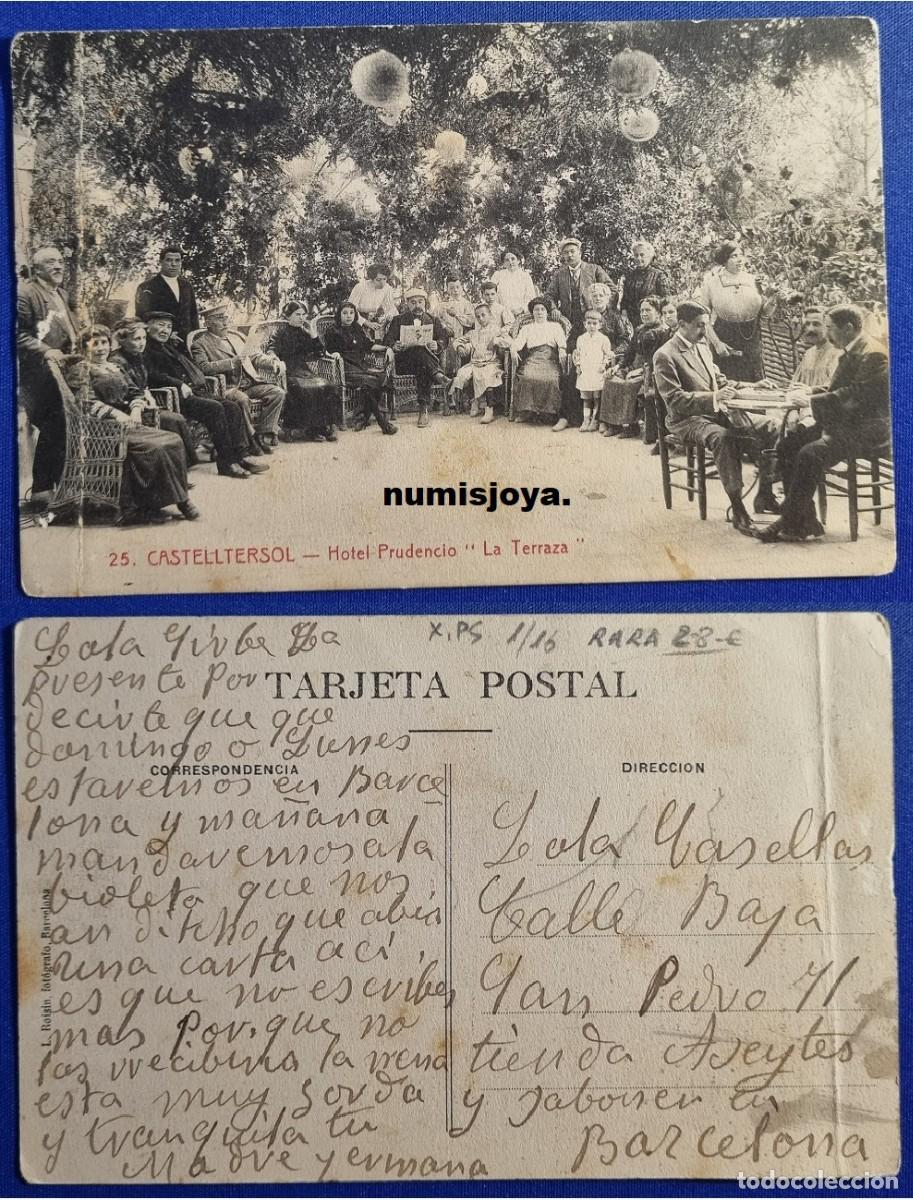 numisjoya.
25. CASTELLTERSOL — Hotel Prudencio " La Terraza "
X.PS 1/16 RARA 28-€
TARJETA POSTAL
CORRESPONDENCIA
Lola Sirbe La
presente Por
decirte que que
domingo o Lunes
estaremos en Barce
lona y mañana
mandaremos ala
bioleta que nos
an ditcho que abia
una carta aci
es que no escribes
mas Por que no
las rrecibimo la nena
esta muy gorda
y tranquila tu
Madre y ermana
L. Roisin, fotógrafo, Barcelona
DIRECCION
Lola Casellas
Calle Baja
San Pedro 71
tienda Aseytes
y Jabones en
Barcelona
todocoleccion